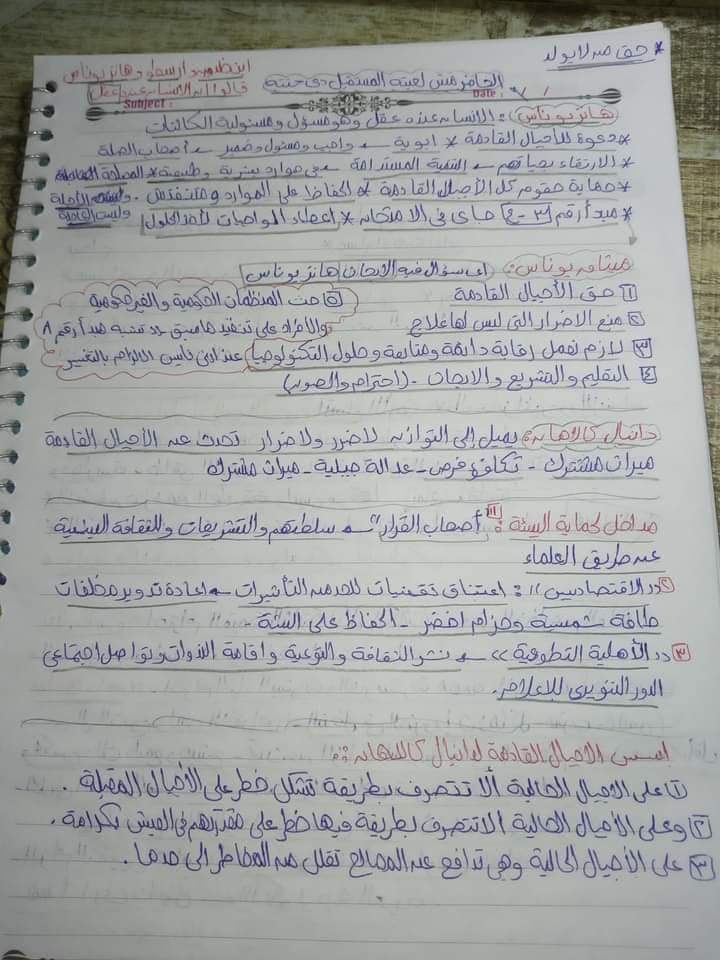 * حق من لا يولد
ابن طفيل وارسطو وهانز يوناس
قالوا ان الانسان عنده عقل
الحاضر مش لعبته المستقبل دى حتته
Subject : Date : / /
هانز يوناس : الانسان عنده عقل وهو مسؤل ومسئولية الكائنات
* دعوة للأجيال القادمة * ابوية ← واجب ومسئول وضمير ← أصحاب الصلة
* الارتقاء بحياتهم ← التنمية المستدامة ← فى موارد بشرية وطبيعية * المصلحة العامة
* حماية حقوم كل الأجيال القادمة * الحفاظ على الموارد ومتنفذش . وليست
* مبدأ رقم ٣ - ٤ جاى فى الامتحان * إعطاء المواصفات لأحد الحلول وليست
ميثاق يوناس : اى سؤال فيه الابحاث هانز يوناس
١ حق الأجيال القادمة
٢ منع الاضرار التى ليس لها علاج
٣ لازم نعمل رقابة دائمة ومتابعة وحلول التكنولوجيا
٤ التعليم والتشريع والابحاث - (احترام والصور)
٥ حث المنظمات الحكومية والغير حكومية
والأفراد على تنفيذ ما سبق مبدأ رقم ٨
الالزام بالتغيير
دانيال كالاهان : يميل إلى التوازن لاضرر ولاضرار تحدث عن الأجيال القادمة
ميراث مشترك - تكافؤ فرص - عدالة جيلية - ميراث مشترك
مداخل لحماية البيئة : ١ أصحاب القرار" ← سلطتهم والتشريعات والثقافة البيئية
عن طريق العلماء
٢ دد الاقتصاديين // : اعتناق تقنيات للحد من التأثيرات ← إعادة تدوير مخلفات
طاقة شمسية وحزام اخضر - الحفاظ على البيئة -
٣ دد الأهلية التطوعية >> ← نشر الثقافة والتوعية واقامة الندوات وتواصل اجتماعى
الدور التنويرى للإعلام .
اسس الاجيال القادمة لدانيال كالاهان :
١ على الاجيال الحالية ألا تتصرف بطريقة تشكل خطر على الأجيال المقبلة .
٢ وعلى الأجيال الحالية الا تتصرف بطريقة فيها خطر على مقدرتهم فى العيش بكرامة .
٣ على الأجيال الحالية وهى تدافع عن المصالح تقلل من المخاطر الى حد ما .